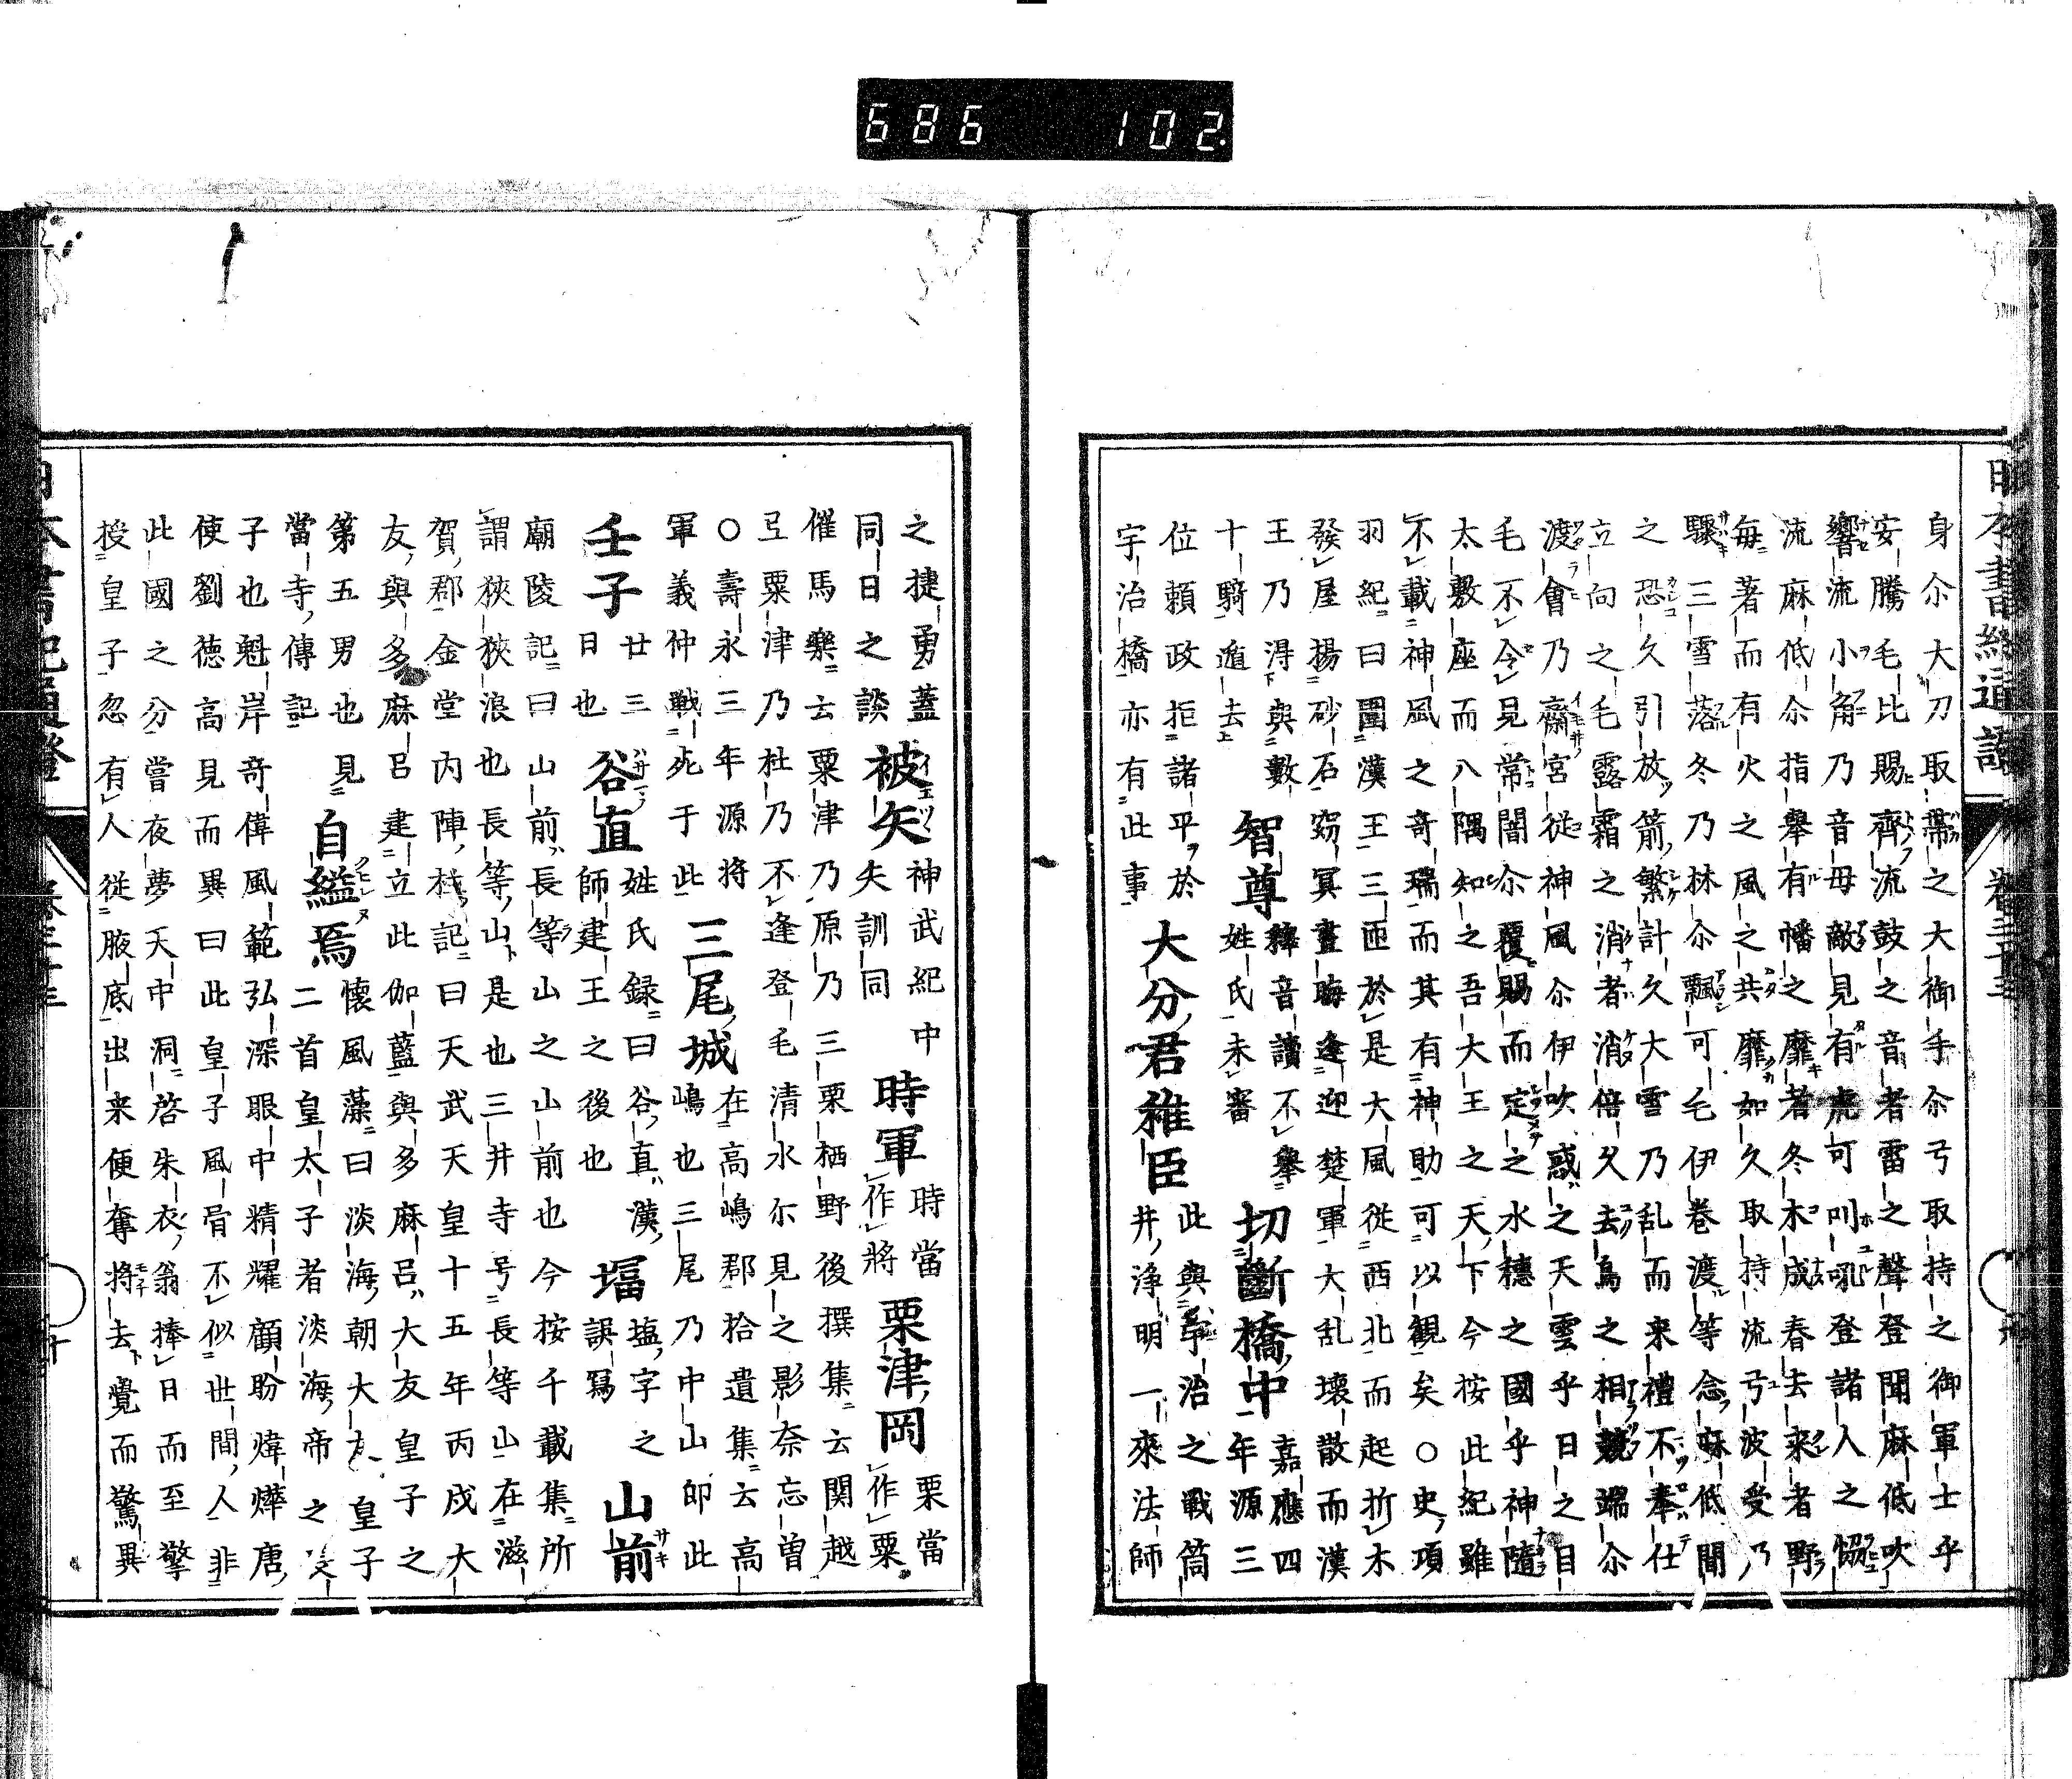 686 102
身尒大刀取帶之大御手尒弓取持之御軍士乎
安騰毛比賜齊流鼓之音者雷之聲登聞麻低吹
響流小角乃音母敵見有虎可叫吼登諸人之恊
流麻低尒指舉有幡之靡者冬木成春去来者野
毎著而有火之風之共靡如久取持流弓波受乃
驟三雪落冬乃林尒飄可毛伊巻渡等念麻低聞
之恐久引放箭繁計久大雪乃乱而来禮不奉仕
立向之毛露霜之消者消倍久去鳥之相競端尒
渡會乃齋宮従神風尒伊吹惑之天雲乎日之目
毛不令見常闇尒覆賜而定之水穗之國乎神隨
太敷座而八隅知之吾大王之天下今按此紀雖
不載神風之奇瑞而其有神助可以観矣○史項
羽紀曰圍漢王三匝於是大風従西北而起折木
發屋揚砂石窈冥晝晦逢迎楚軍大乱壞散而漢
王乃得與數十騎遁去 智尊 釋音讀不舉姓氏未審 切斷橋中 嘉應四年源三
位頼政拒諸平於宇治橋亦有此事 大分君稚臣 此與宇治之戰筒井浄明一來法師
之捷勇蓋同日之談 被矢 神武紀中矢訓同 時軍 時當作將 栗津岡 栗當作粟
催馬樂云粟津乃原乃三栗栖野後撰集云関越
弖粟津乃杜乃不逢登毛清水尓見之影奈忘曽
○壽永三年源将軍義仲戦死于此 三尾城 在高嶋郡拾遺集云高嶋也三尾乃中山即此
壬子 廿三日也 谷直 姓氏録曰谷直漢師建王之後也 塭 塩字之誤冩 山前
廟陵記曰山前長等山之山前也今按千載集所
謂狹狹浪也長等山是也三井寺号長等山在滋
賀郡金堂内陣札記曰天武天皇十五年丙戌大
友與多麻呂建立此伽藍與多麻呂大友皇子之
第五男也見當寺傳記 自縊焉 懷風藻曰淡海朝大友皇子二首皇太子者淡海帝之長
子也魁岸奇偉風範弘深眼中精耀顧盼煒燁唐
使劉徳高見而異曰此皇子風骨不似世間人非
此國之分嘗夜夢天中洞啓朱衣翁捧日而至擎
授皇子忽有人従腋底出来便奪将去覺而驚異
日本書紀通證 卷三十三